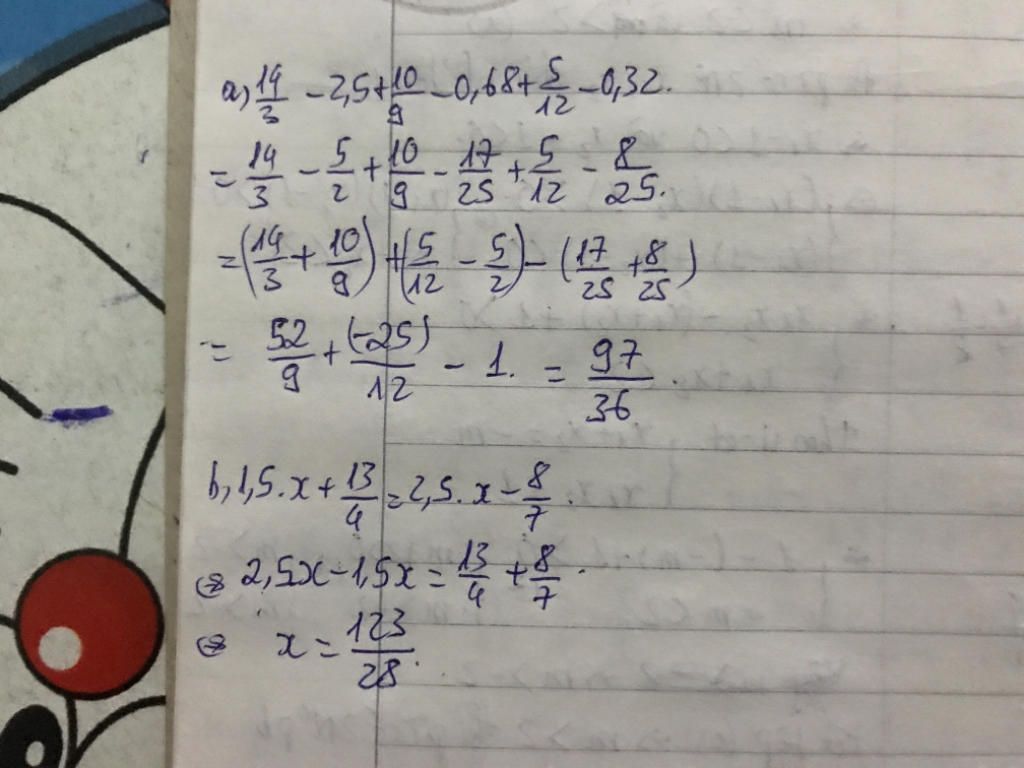 a, 14/3 - 2,5 + 10/9 - 0,68 + 5/12 - 0,32.
= 14/3 - 5/2 + 10/9 - 17/25 + 5/12 - 8/25.
= (14/3 + 10/9) + (5/12 - 5/2) - (17/25 + 8/25)
= 52/9 + (-25)/12 - 1. = 97/36.
b, 1,5.x + 13/4 = 2,5.x - 8/7.
⇔ 2,5x - 1,5x = 13/4 + 8/7.
⇔ x = 123/28.